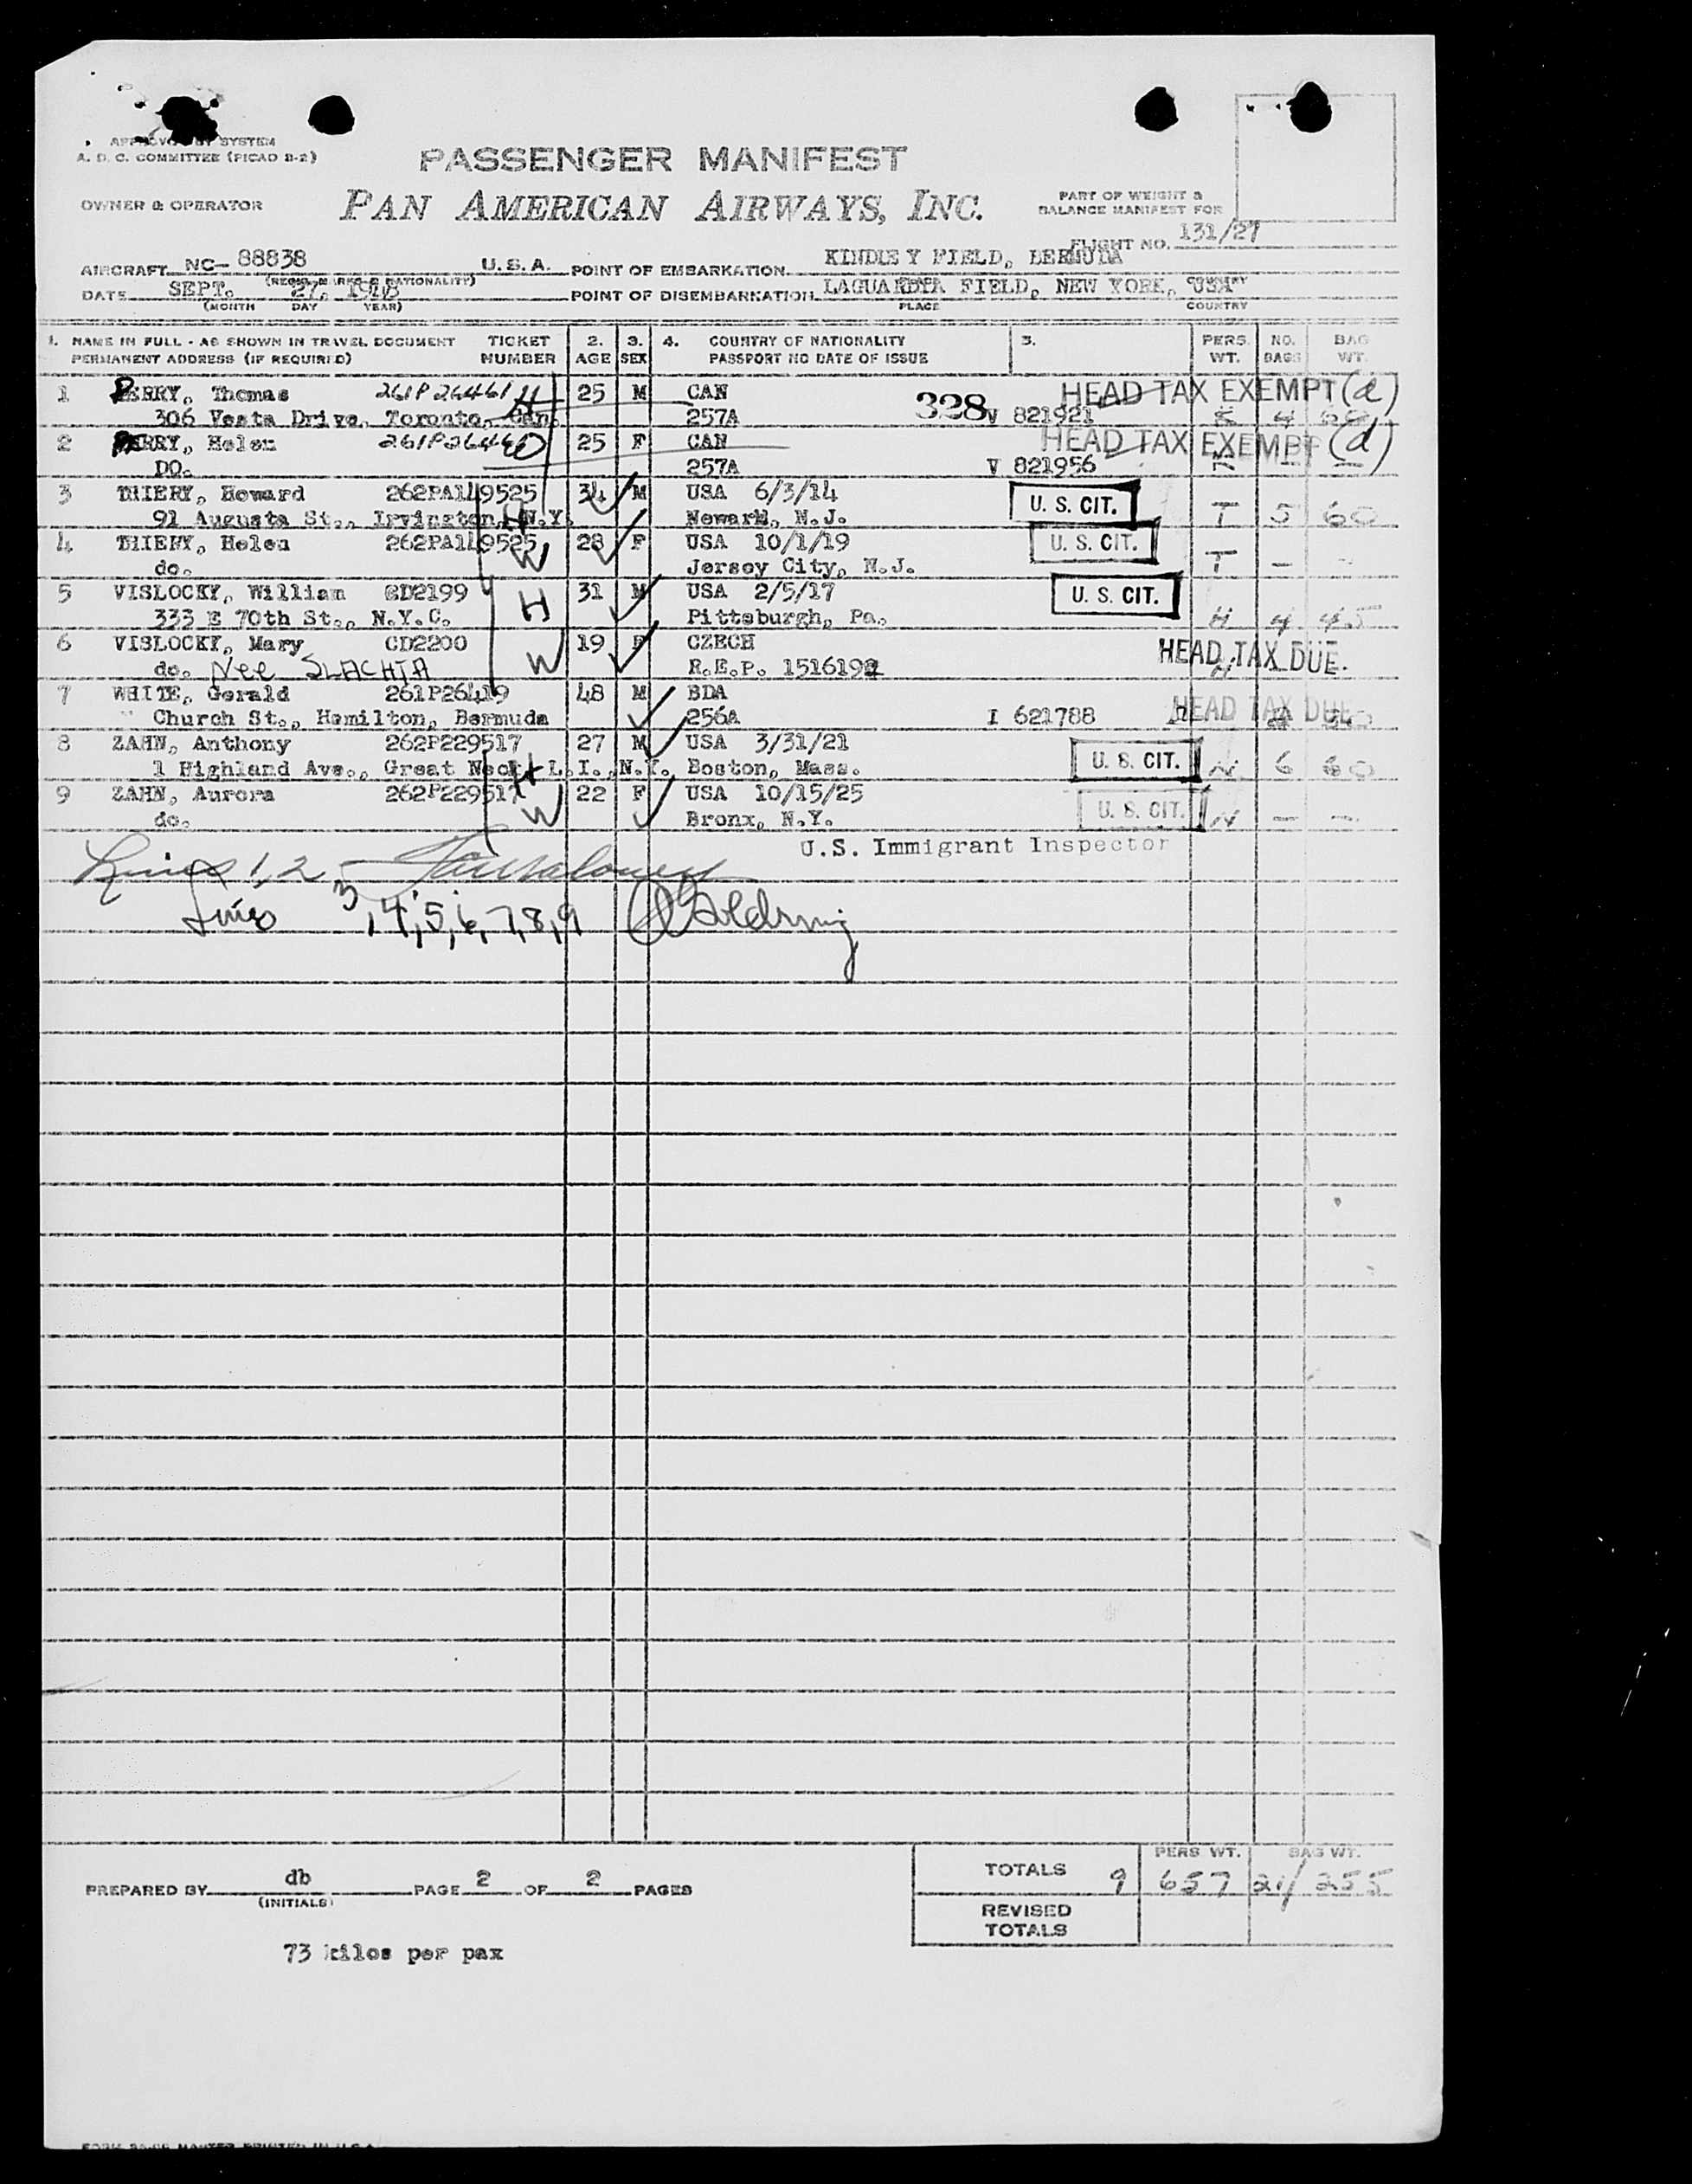 APPROVED BY SYSTEM
A. D. C. COMMITTEE (PICAO B-2)
PASSENGER MANIFEST
OWNER & OPERATOR PAN AMERICAN AIRWAYS, INC.
PART OF WEIGHT &
BALANCE MANIFEST FOR
FLIGHT NO. 131/27
AIRCRAFT NC- 88838 U.S.A. POINT OF EMBARKATION KINDLEY FIELD, BERMUDA
(REGIS. MARKS & NATIONALITY)
DATE SEPT. 27, 1948 POINT OF DISEMBARKATION LAGUARDIA FIELD, NEW YORK, USA
(MONTH DAY YEAR) PLACE COUNTRY
1. NAME IN FULL - AS SHOWN IN TRAVEL DOCUMENT TICKET 2. 3. 4. COUNTRY OF NATIONALITY 5. PERS. NO. BAG
PERMANENT ADDRESS (IF REQUIRED) NUMBER AGE SEX PASSPORT NO DATE OF ISSUE WT. BAGS WT.
1 PERRY, Thomas 261P26461 H 25 M CAN HEAD TAX EXEMPT (d)
306 Vesta Drive, Toronto, Can. 257A 328 V 821921 4 60
2 PERRY, Helen 261P26440 25 F CAN HEAD TAX EXEMPT (d)
DO. 257A V 821956
3 THIERY, Howard 262PA149525 34 M USA 6/3/14 U. S. CIT.
91 Augusta St., Irvington, N.Y. H Newark, N.J. T 5 60
4 THIERY, Helen 262PA149525 W 28 F USA 10/1/19 U. S. CIT.
do. Jersey City, N.J. T - -
5 VISLOCKY, William CD2199 H 31 M USA 2/5/17 U. S. CIT.
333 E 70th St., N.Y.C. Pittsburgh, Pa. H 4 45
6 VISLOCKY, Mary CD2200 W 19 F CZECH HEAD TAX DUE.
do. Nee SLACHTA R.E.P. 1516192
7 WHITE, Gerald 261P26419 48 M BDA HEAD TAX DUE
Church St., Hamilton, Bermuda 256A I 621788
8 ZAHN, Anthony 262P229517 27 M USA 3/31/21 U. S. CIT.
1 Highland Ave., Great Neck, L.I., N.Y. H Boston, Mass. N 6 60
9 ZAHN, Aurora 262P229517 W 22 F USA 10/15/25 U. S. CIT.
do. Bronx, N.Y. N - -
U.S. Immigrant Inspector
Lines 1, 2
Lines 3, 4, 5, 6, 7, 8, 9
PERS WT. BAG WT.
TOTALS 9 657 21/ 255
PREPARED BY db PAGE 2 OF 2 PAGES
(INITIALS)
REVISED
TOTALS
73 kilos per pax